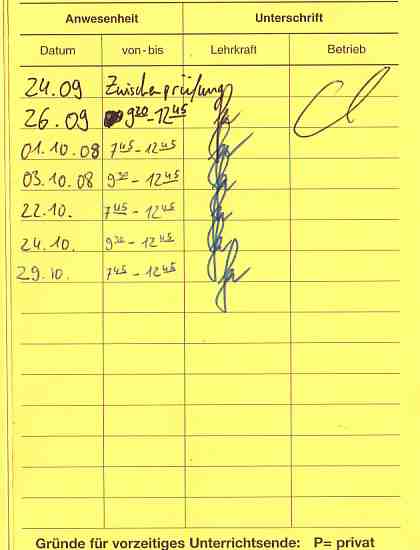 Anwesenheit Unterschrift
Datum von-bis Lehrkraft Betrieb
24.09 Zwischenprüfung
26.09 9³⁰-12⁴⁵
01.10.08 7⁴⁵-12⁴⁵
03.10.08 9³⁰-12⁴⁵
22.10. 7⁴⁵-12⁴⁵
24.10. 9³⁰-12⁴⁵
29.10. 7⁴⁵-12⁴⁵
Gründe für vorzeitiges Unterrichtsende: P= privat